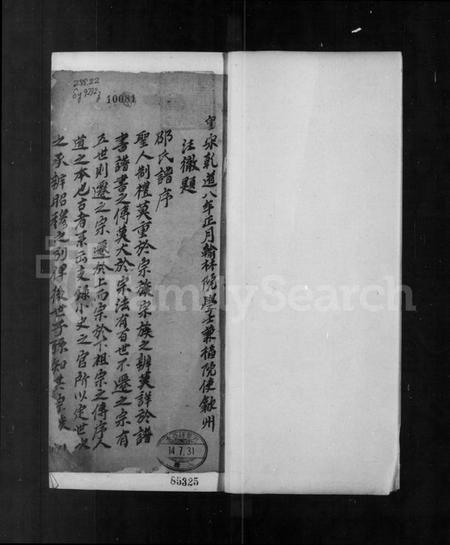 皇宋乾道八年正月翰林院學士兼樞院使歙州
汪徹題
邵氏譜序
聖人制禮莫重於宗族宗族之辨莫詳於譜
書譜書之傳莫大於宗法有百世不遷之宗有
五世則遷之宗遷於上而宗於下祖宗之傳序人
道之本也古者系西史孫小史之官所以定世次
之承辨昭穆之列俾後世子孫知其宗
10081
14.7.31
85325
FamilySearch